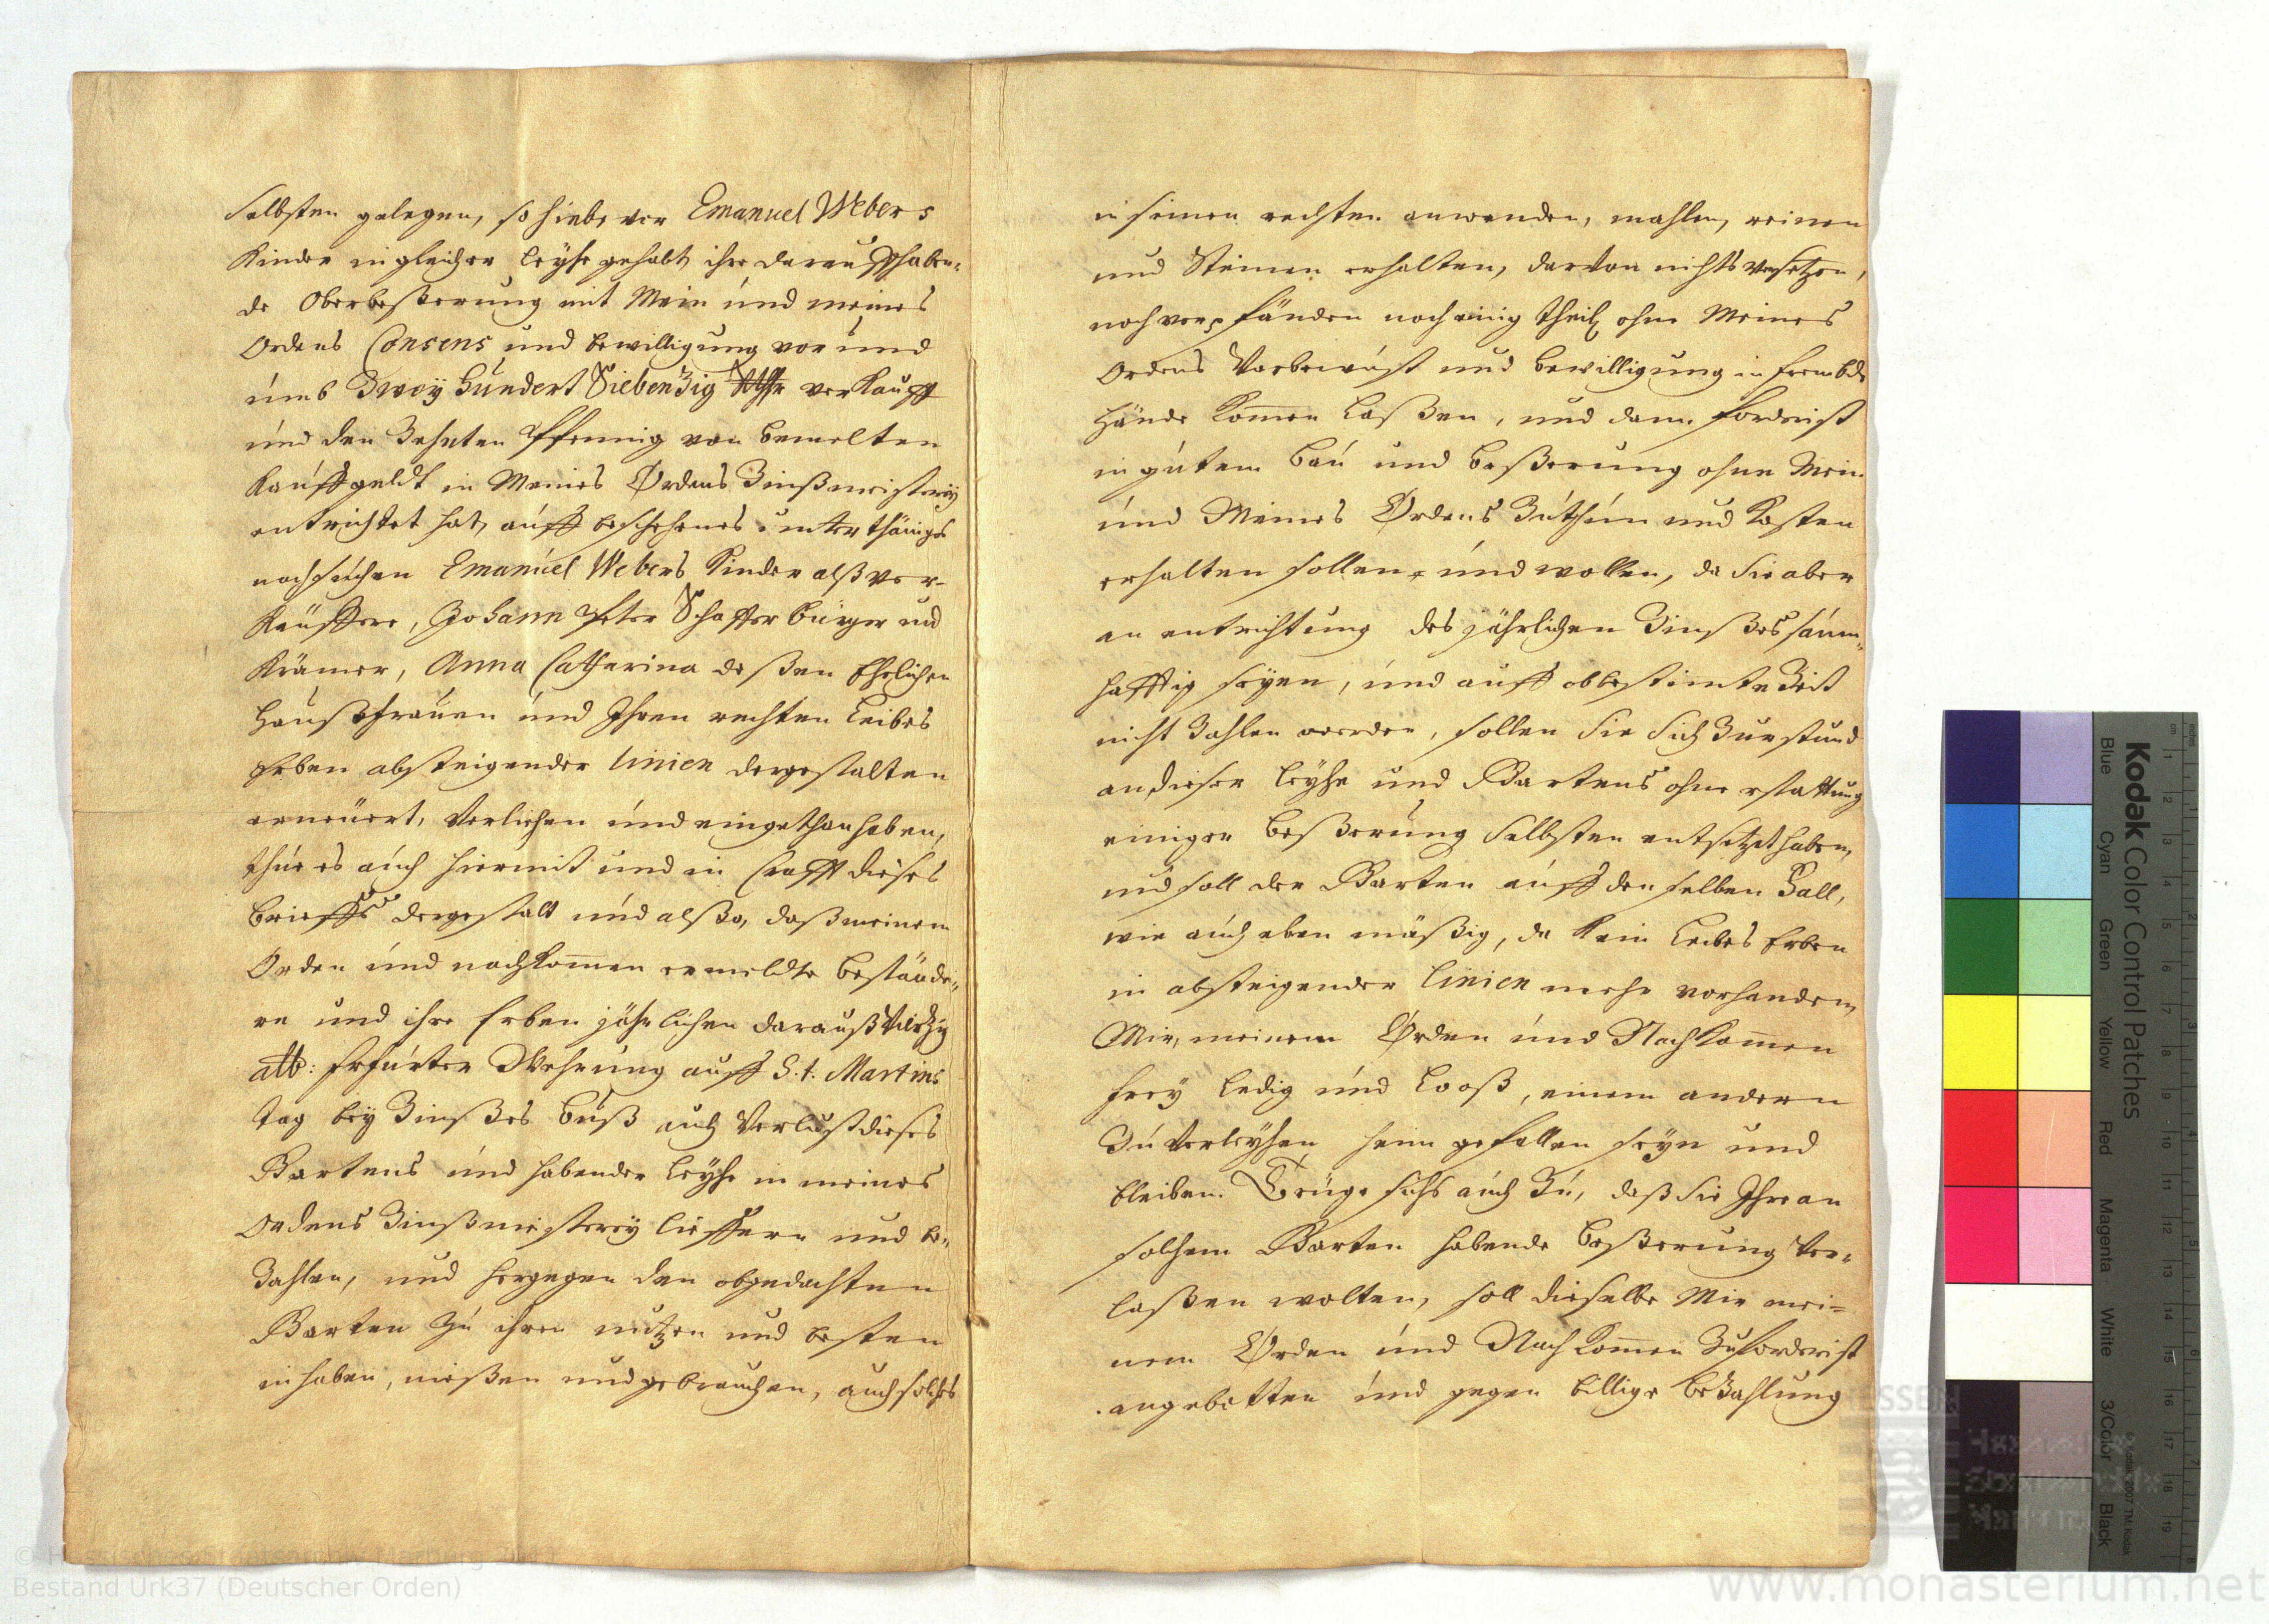 selbsten gelegen, so hiebevor Emanuel Webers
Kinder in gleicher Leyhe gehabt ihre darauffhaben-
de Oberbeßerung mit Mein und meines
Ordens Consens und bewilligung vor und
umb Zwey Hundert Siebenzig verkaufft
und den Zehnten Pfennig von bemelten
Kauffgeldt in Meines Ordens Zinßmeisterey
entrichtet hat, auff beschehenes unterthäniges
nachsuchen Emanuel Webers Kinder alß ver-
Käuffere, Johann Peter Schaffer Burger und
Krämer, Anna Catharina deßen Ehelichen
Haußfrauen und Ihren rechten Leibes
Erben absteigender linien dergestalten
erneuert, Verliehen und eingethan haben,
thue es auch hiermit und in Crafft dieses
brieffs dergestalt und alßo, daß meinem
Orden und nachkommen ermeldte beständ-
re und ihre Erben jährlichen darauß Vierzig
alb: Erfurter Wehrung auff S.t. Martins
tag bey Zinßes buß auch Verlust dieses
Gartens und habender Leyhe in meines
Ordens Zinßmeisterey lieffern und be-
Zahlen, und hergegen den obgedachten
Garten Zu ihren nutzen und besten
inhaben, nießen und gebrauchen, auch solches
in seinen rechten anwenden, mahlen, reinen
und Steinen erhalten, darvon nichts Versetzen,
noch verpfänden noch einig theil ohne Meines
Ordens Vorbewust und bewilligung in frembde
Hände kommen laßen, und dann forderist
in gutem bau und beßerung ohne Mein
und Meines Ordens Zuthun und Kosten
erhalten sollen und wollen, da sie aber
an entrichtung des jährlichen Zinßes säum-
hafftig seyen, und auff obbestimte Zeit
nicht Zahlen werden, sollen sie sich Zurstund
an dieser Leyhe und Gartens ohne rstattung
einiger beßerung selbsten entsetzet haben,
und soll der Garten auff den selben Fall,
wie auch eben mäßig, da kein Leibes Erben
in absteigender linien mehr vorhanden,
Mir, meinem Orden und Nachkommen
frey ledig und Looß, einem andern
Zu Verleyhen heim gefallen seyn und
bleiben. Trüge sichs auch Zu, daß sie Ihre an
solchem Garten habende beßerung Ver-
laßen wolten, soll dieselbe Mir mei-
nem Orden und Nachkommen Zuforderist
angebotten und gegen billige beZahlung
© Hessisches Staatsarchiv Marburg
Bestand Urk37 (Deutscher Orden)
www.monasterium.net
Kodak Color Control Patches
Blue Cyan Green Yellow Red Magenta White 3/Color Black